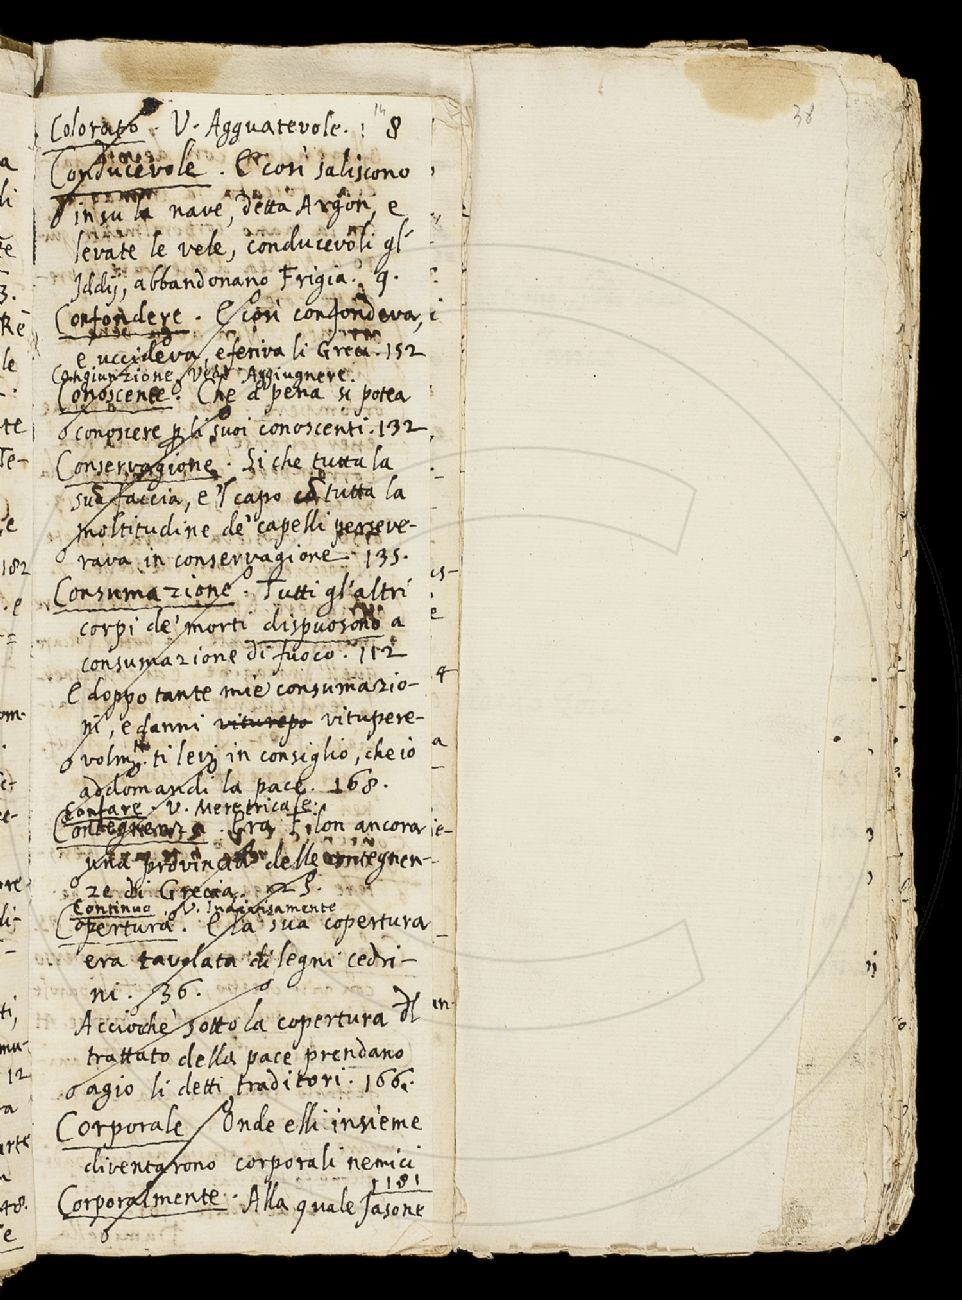 Colorato. V. Agguatevole. 8
38
Conducevole. E così saliscono
in su la nave, detta Argon, e
levate le vele, conducevoli gl'
Iddij, abbandonano Frigia. 9.
Confondere. E così confondeva,
e uccideva, e feriva li Greci. 152
Congiunzione, Vedi Aggiugnere.
Conoscente. Che a pena si potea
conoscere li suoi conoscenti. 132
Conservagione. Si che tutta la
sua faccia, e 'l capo tutta la
moltitudine de' capelli perseve-
rava in conservagione. 135.
Consumazione. Tutti gl'altri
corpi de' morti dispuosono a
consumazione di fuoco. 112
E doppo tante mie consumazio-
ni, e danni viturepo vitupere-
ti levi in consiglio, che io
addomandi la pace. 168.
Contare. V. Meretricale.
Contegnenza. Era Filon ancora
una provincia delle contegnen-
ze di Grecia.
Continuo. V. Indivisamente
Copertura. E la sua copertura
era tavolata di legni cedri-
ni. 36.
Acciochè sotto la copertura
trattato della pace prendano
agio li detti traditori. 166.
Corporale Onde elli insieme
diventarono corporali nemici
181
Corporalmente. Alla quale Jasone